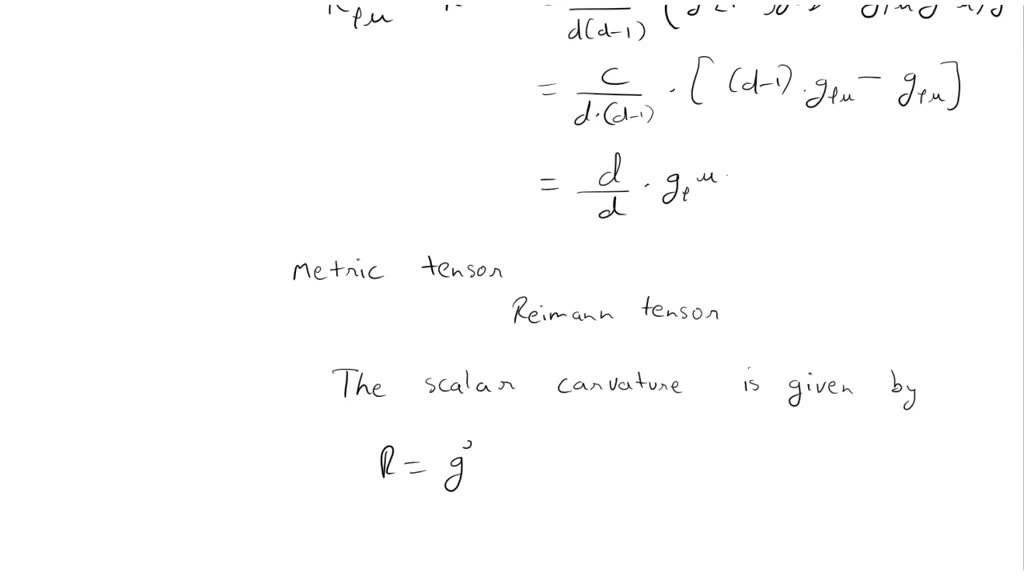 d(d-1)
= c / d.(d-1) . [ (d-1) . gρμ - gρμ ]
= d / d . gρ^μ.
Metric tensor
Reimann tensor
The scalar carvature is given by
R = g